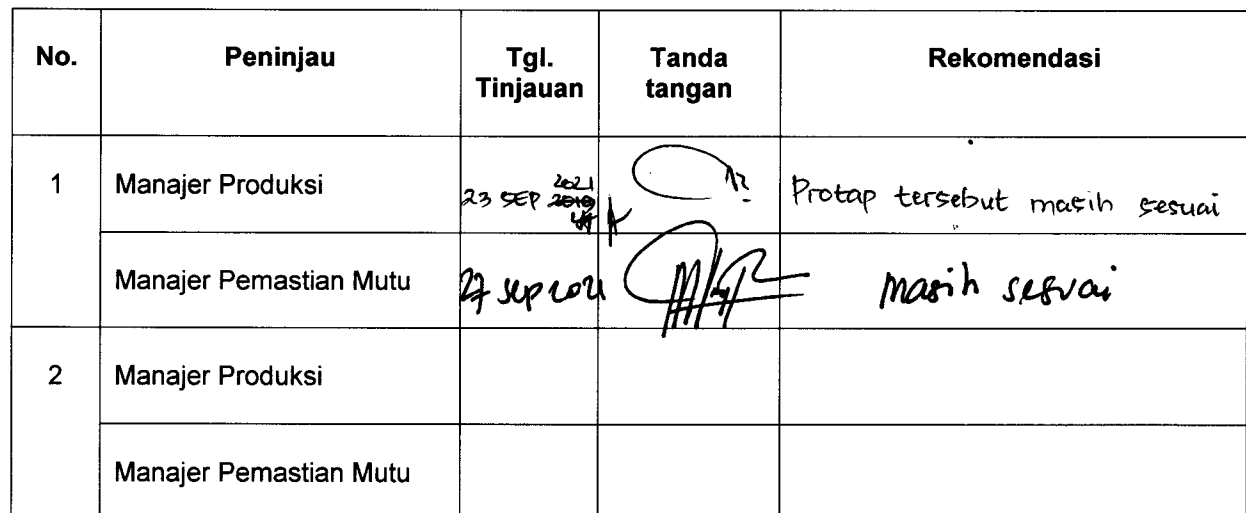 No. Peninjau Tgl. Tinjauan Tanda tangan Rekomendasi
1 Manajer Produksi 23 SEP 2021 2019 Protap tersebut masih sesuai
Manajer Pemastian Mutu 27 Sep 2021 masih sesuai
2 Manajer Produksi
Manajer Pemastian Mutu